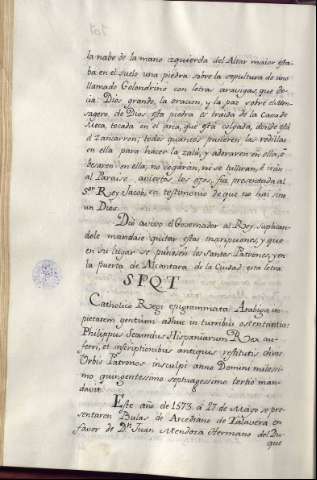 la nabe de la mano izquierda del Altar maior esta
ba en el suelo una piedra sobre la sepultura de uno
llamado Golondrino con letras arauigas, que de-
cia. Dios grande, la oracion, y la paz sobre el Men
sagero, de Dios, esta piedra es traida de la Casa de
Meca, tocada en el arca, que está colgada, donde esta
el Zancarron; todos quantos pusieren las rodillas
en ella para hacer la zalá, y adoraren en ella, ó
besaren en ella, no cegarán, ni se tulliran, é irán
al Paraiso
Rey Jacob, en testimonio de que no hai sin
un Dios.
Dió aviso el Governador al Rey, suplican-
dole mandase quitar estas inscripciones, y que
en su lugar se pusiesen los Santos Patrones, y en
la puerta de Alcantara de la Ciudad esta letra
SPQT
Catholico Regi epigrammata Arabiga im
pietatem gentium adhuc in turribus ostentantia:
Philippus Secundus Hispaniarum Rex au-
ferri, et inscriptionibus antiquis restitutis divos
Orbis Patronos insculpi anno Domini milessi
mo quingentessimo septuagessimo tertio man-
davit.
Este año de 1573. á 27 de Marzo se pre-
sentaron Bulas de Arcediano de Talavera en
favor de Dn. Juan Mendoza Hermano del Du-
que